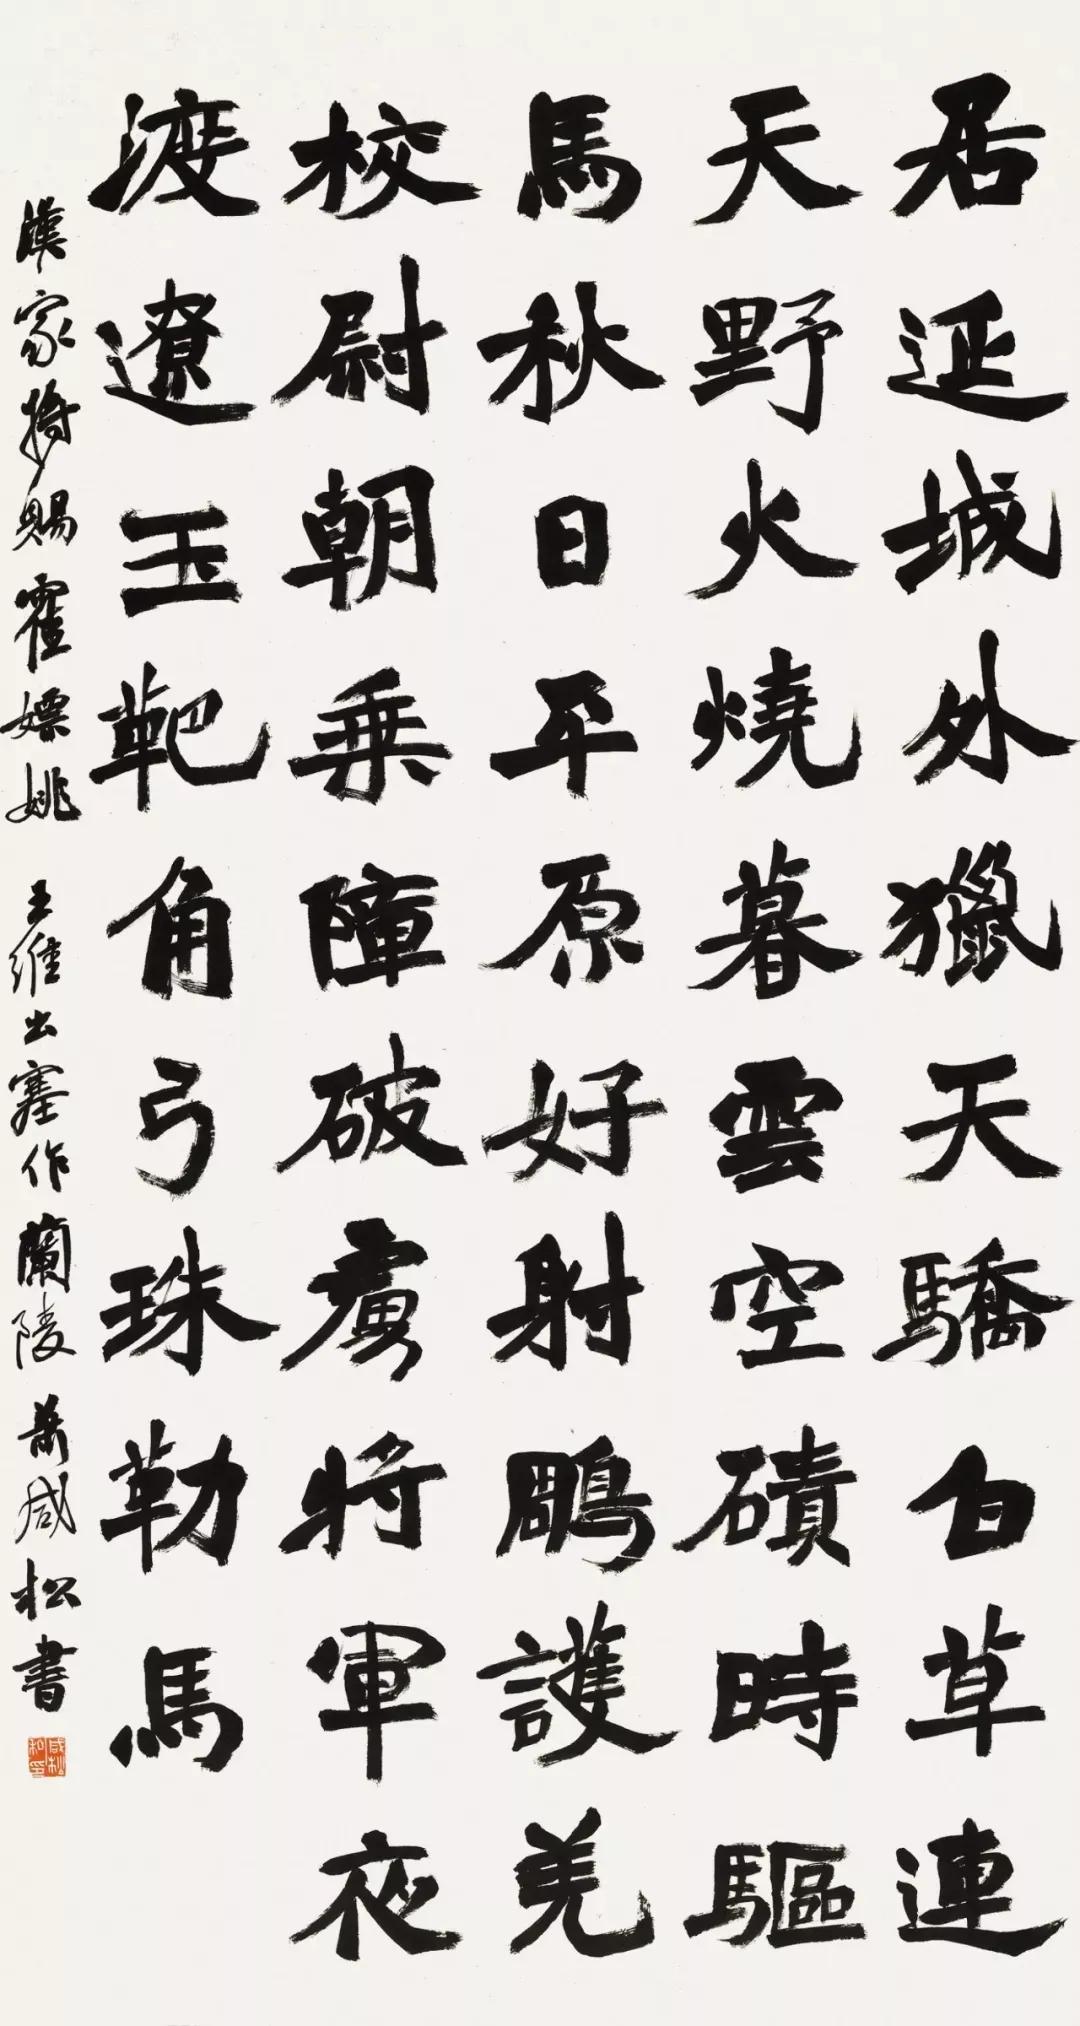 居延城外獵天驕白草連
天野火燒暮雲空磧時驅
馬秋日平原好射鵰護羌
校尉朝乗障破虜將軍夜
渡遼玉靶角弓珠勒馬
漢家将賜霍嫖姚 王維出塞作 蘭陵蕭咸松書